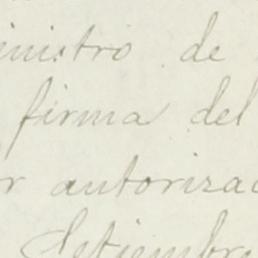 inistro de
firma del
r autorizac
Setiembre